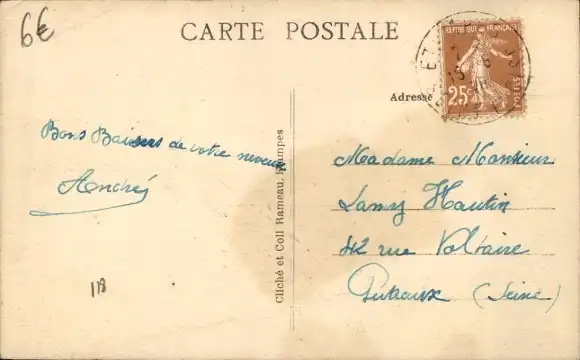 6€
CARTE POSTALE
RÉPUBLIQUE FRANÇAISE
25c
POSTES
Adresse
Bons Baisers de votre neveu
André
118
Cliché et Coll Rameau, Etampes
Madame Monsieur
Lamy Hautin
42 rue Voltaire
Puteaux (Seine)